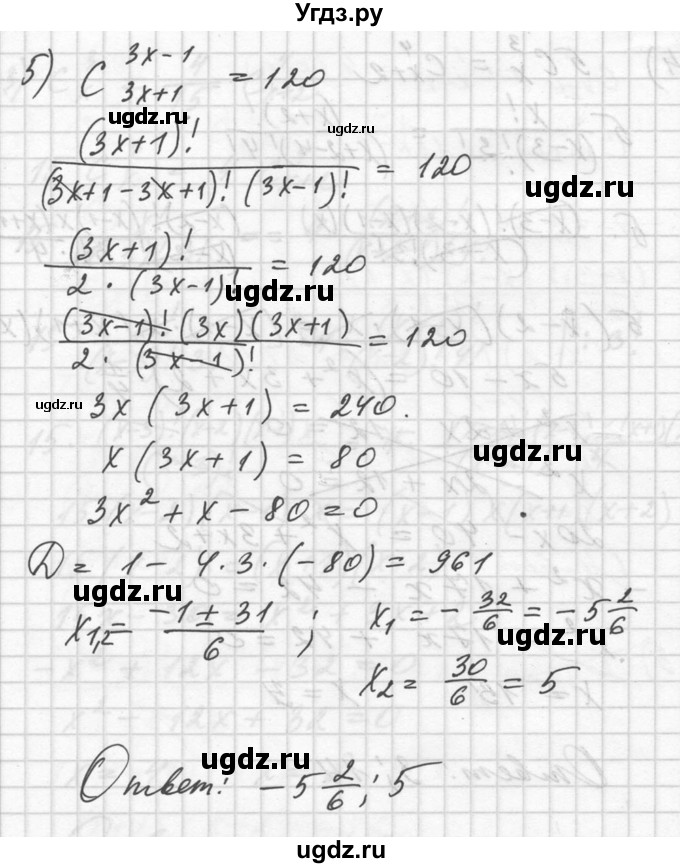 Угдз.ру
5) C^{3x-1}_{3x+1} = 120
ugdz.ru ugdz.ru
(3x+1)! / (3x+1-3x+1)! (3x-1)! = 120
ugdz.ru
(3x+1)! / 2 · (3x-1)! = 120
ugdz.ru
(3x-1)! (3x)(3x+1) / 2 · (3x-1)! = 120
ugdz.ru 3x (3x+1) = 240.
x (3x+1) = 80
ugdz.ru
3x² + x - 80 = 0
D = 1 - 4·3·(-80) = 961
ugdz.ru
x₁,₂ = (-1 ± 31) / 6 ; x₁ = - 32/6 = -5 2/6
x₂ = 30/6 = 5
ugdz.ru
Ответ: -5 2/6; 5
ugdz.ru